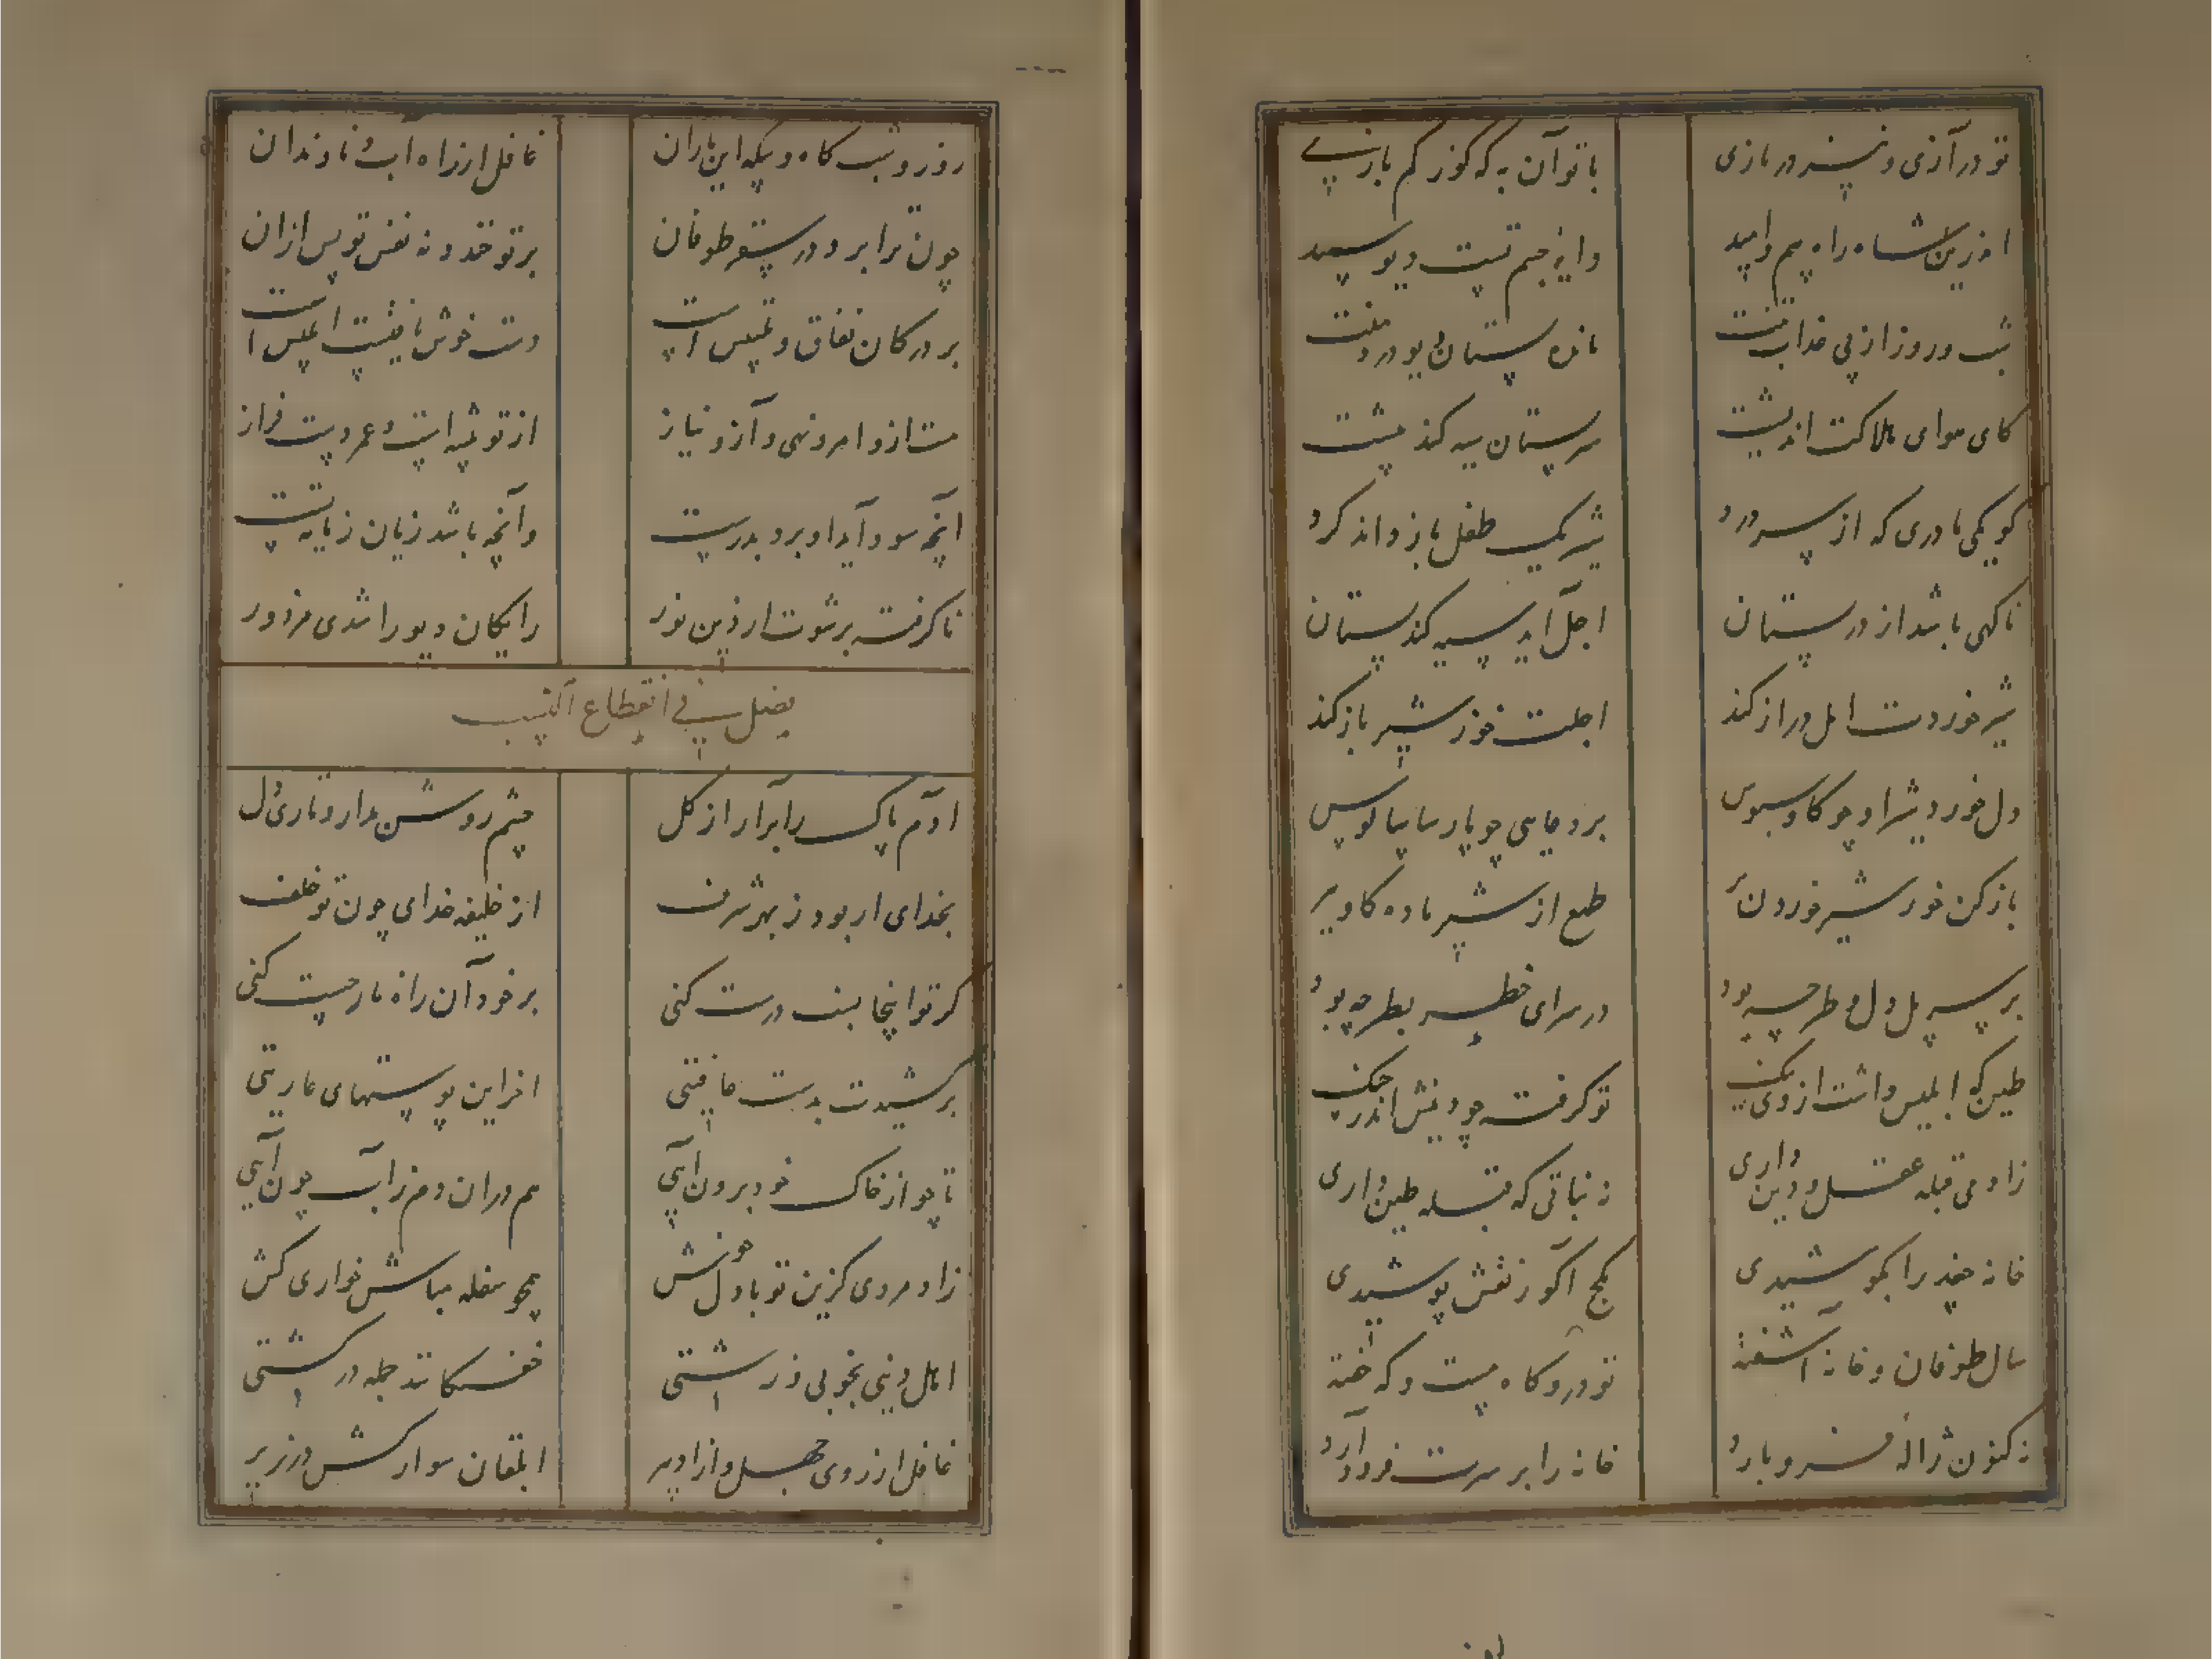 تو در آزی و نبشر در بازی با تو آن به که کوز کم بازی
اندرین شاه راه بیم وامید دایه جسم تست دیو سپید
شب و روز از پی عذاب تنت مانده پستان دیو در دهنت
کای هوای هلاکت اندیشت سر پستان سیه کند پیشت
کو یکی مادری که از سر درد شیر یک طفل باز داند کرد
ناگهی باشد از در پستان اجل آید سیه کند پستان
شیر خوردت امل دراز کند اجلت خو ز شیر باز کند
دل خورد شیر او چو گاو سبوس برد جاهی چو پارسا سالوس
باز کن خو ز شیر خوردن طمع از شیر ماده گاو ببر
بر سر پل دل و طرب چه بود در سرای خطر بطر چه بود
طین که ابلیس داشت ازوی ننگ تو گرفته چو دینش اندر چنگ
زادمی قبله عقل و دین داری نه نباتی که قبله طین داری
خانه جغد را بکوشیدی کنج آکو ز نفس پوشیدی
سال طوفان و خانه آشفته تو درو گاه مست و گه خفته
نه کنون ژاله فرو بارد خانه را بر سرت فرود آرد
روز و شب گاه و بیگه این باران غافل از راه آب ناودان
چون ترا برد در ستر طوفان بر تو خندد نه نفس تو پس ازان
بر در کان نفاق و تلبیس است دست خوش با نشست ابلیس است
مست ازو امر و نهی و آز و نیاز از تو شیر است و عمر و پست فراز
آنچه سود آید او برد بدرست وانچه باشد زیان زیانه تست
ناگرفته برشوت از دین نور رایگان دیو را شدی مزدور
فصل فی انقطاع النسب
آدم پاک را برآر از گل چشم روشن مدار و تاری دل
بخدای ار بود ز بهر شرف از خلیفه خدای چون تو خلف
گر تو اینجا نسب درست کنی بر خود آن راه بار چست کنی
برکشیدت بدست عافیتی اندر این پوستهای عاریتی
تا چو از خاک خود برون آیی هم دران دم ز آب چون آیی
زاد مردی گزین تو با دل خوش همچو سفله مباش خواری کش
اهل دینی بخوبی و زشتی خفتگانند جمله در کشتی
غافل از روی جهل و از ادبیر ابلقان سوار کش در زیر